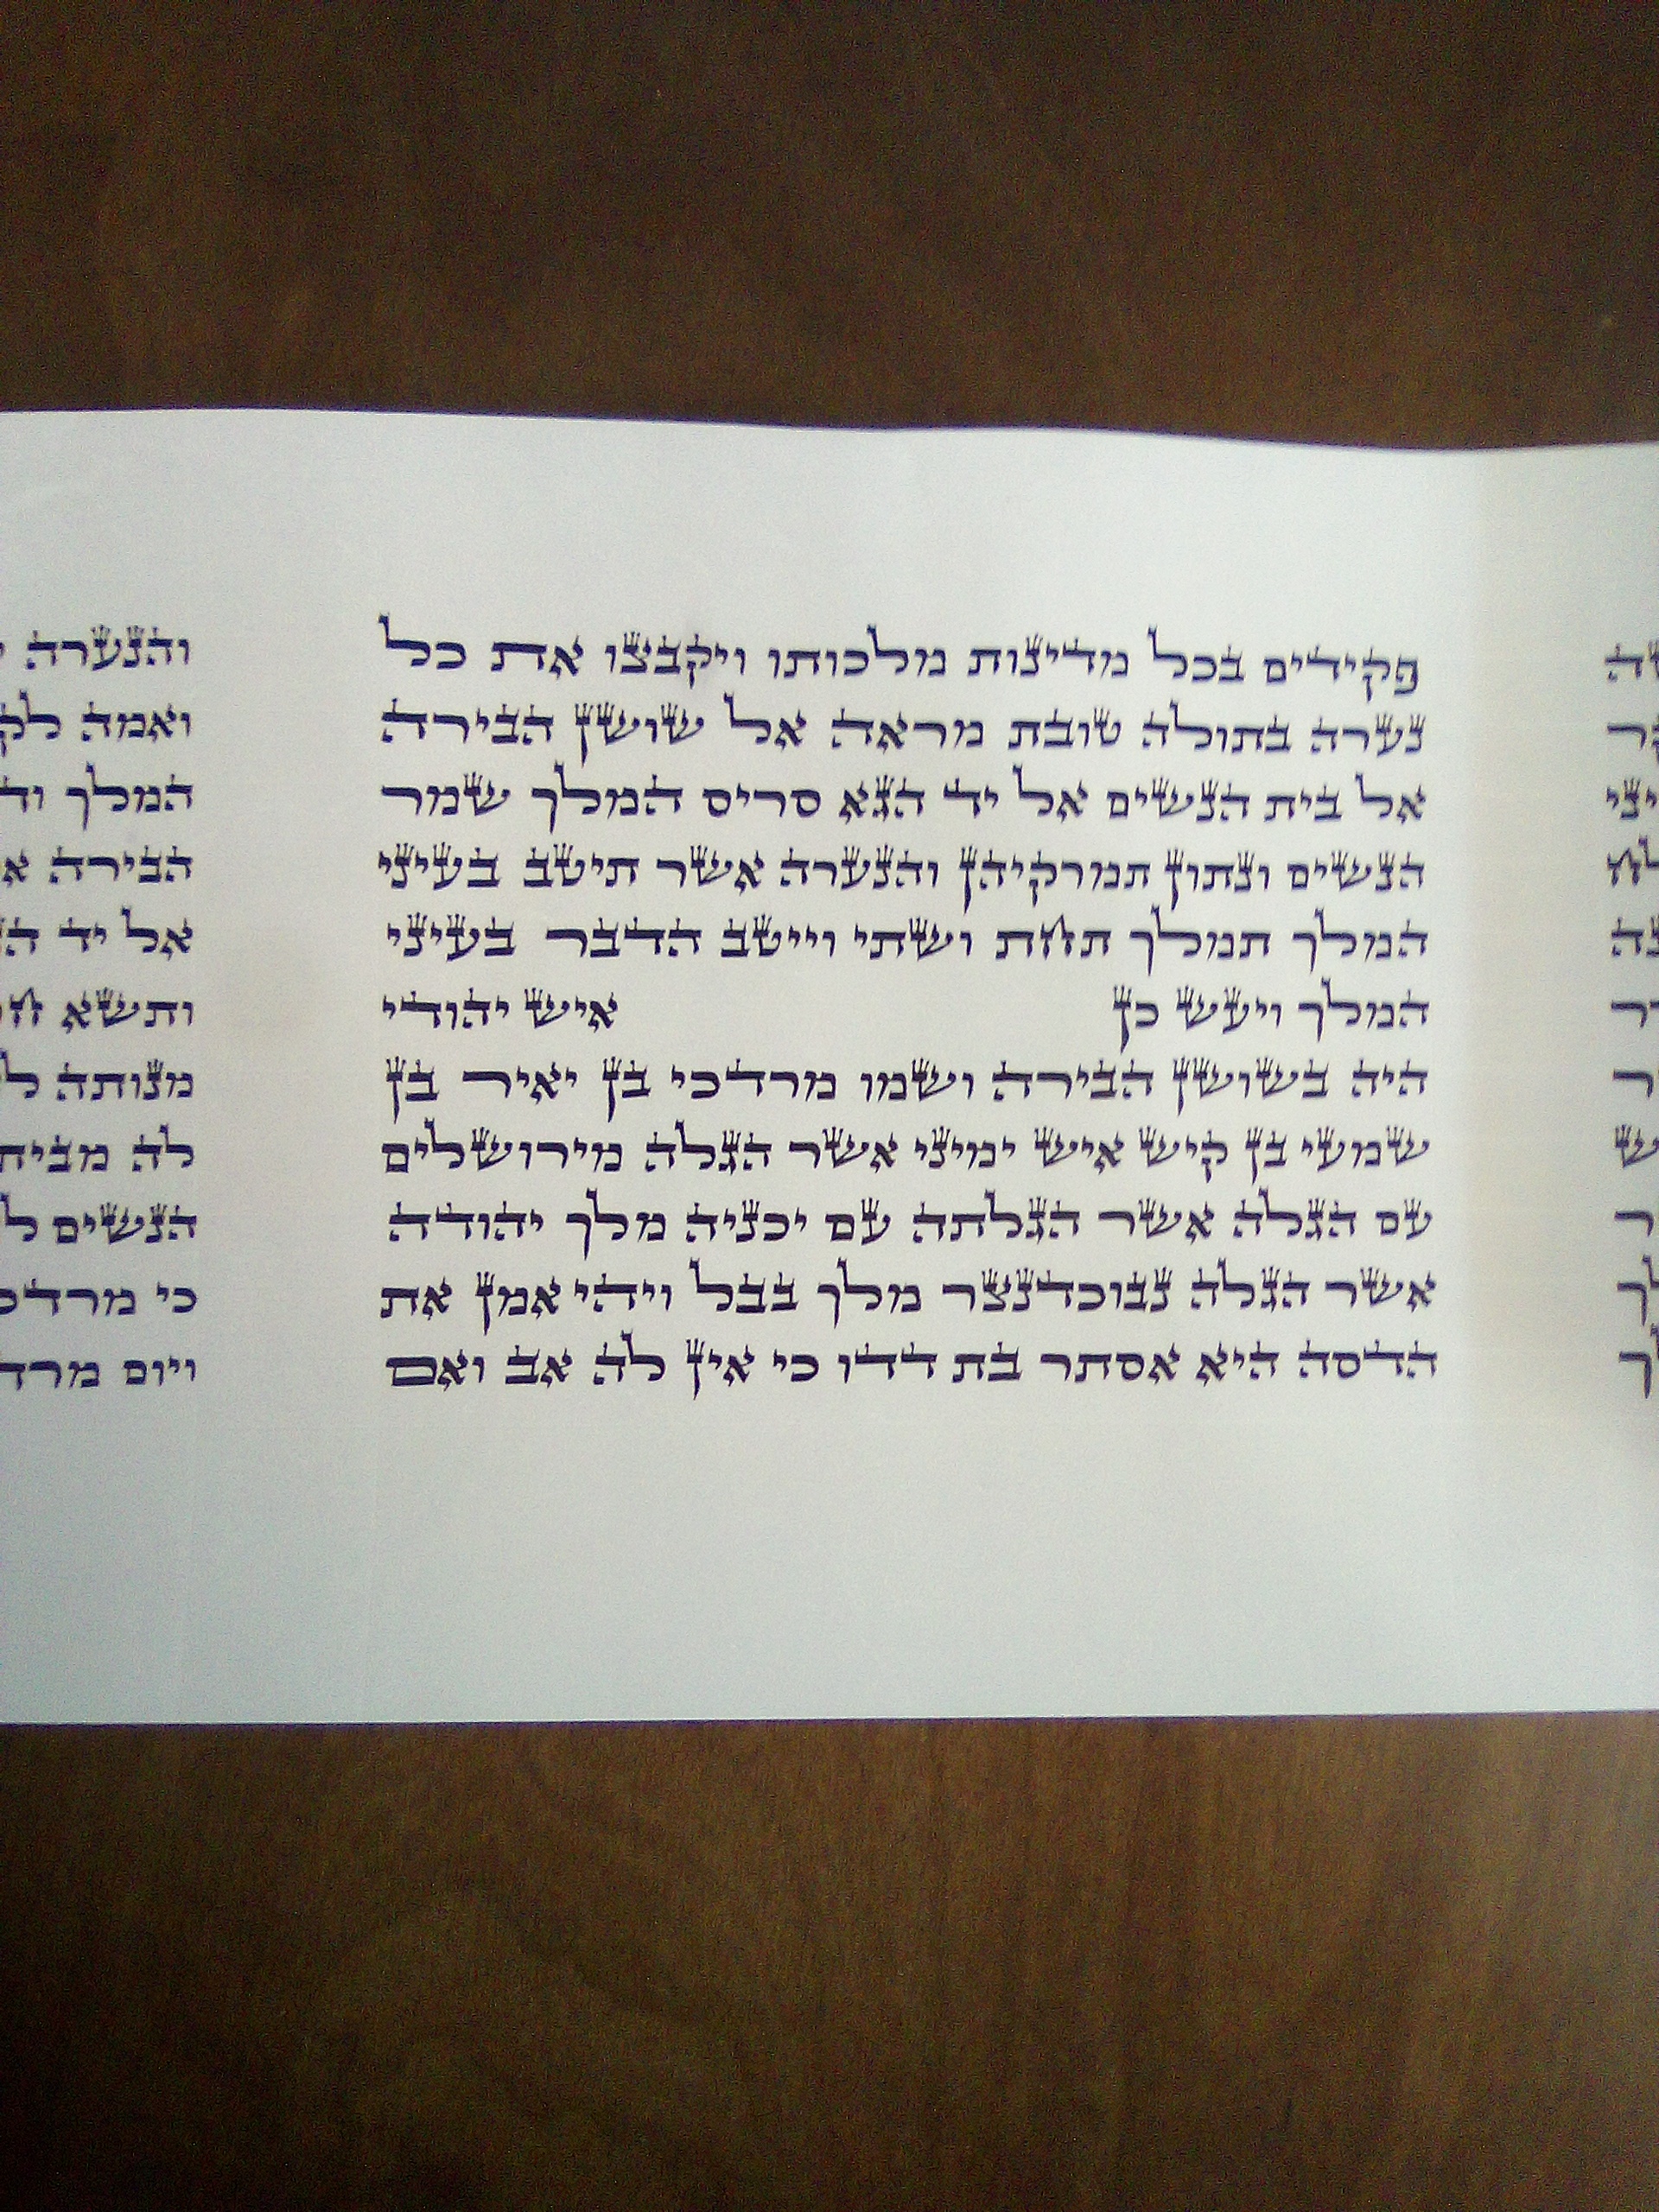 פקידים בכל מדינות מלכותו ויקבצו את כל
נערה בתולה טובת מראה אל שושן הבירה
אל בית הנשים אל יד הגא סריס המלך שמר
הנשים ונתון תמרקיהן והנערה אשר תיטב בעיני
המלך תמלך תחת ושתי וייטב הדבר בעיני
המלך ויעש כן איש יהודי
היה בשושן הבירה ושמו מרדכי בן יאיר בן
שמעי בן קיש איש ימיני אשר הגלה מירושלים
עם הגלה אשר הגלתה עם יכניה מלך יהודה
אשר הגלה נבוכדנצר מלך בבל ויהי אמן את
הדסה היא אסתר בת דדו כי אין לה אב ואם
והנערה
ואמה
המלך
הבירה
אל יד
ותשא
מנותה
לה מבית
הנשים
כי
ויום